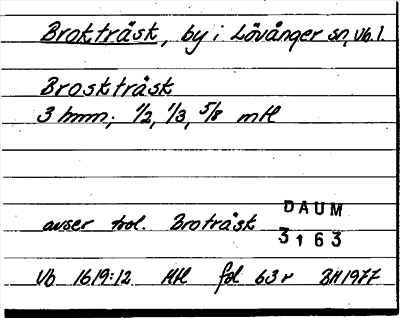 Brokträsk, by i Lövånger sn, Vb. l.
Broskträsk
3 hmn; 1/2, 1/3, 5/8 mtl
avser trol. Broträsk
DAUM
3163
Vb 1619:12 Ml fol 63r BH 1977